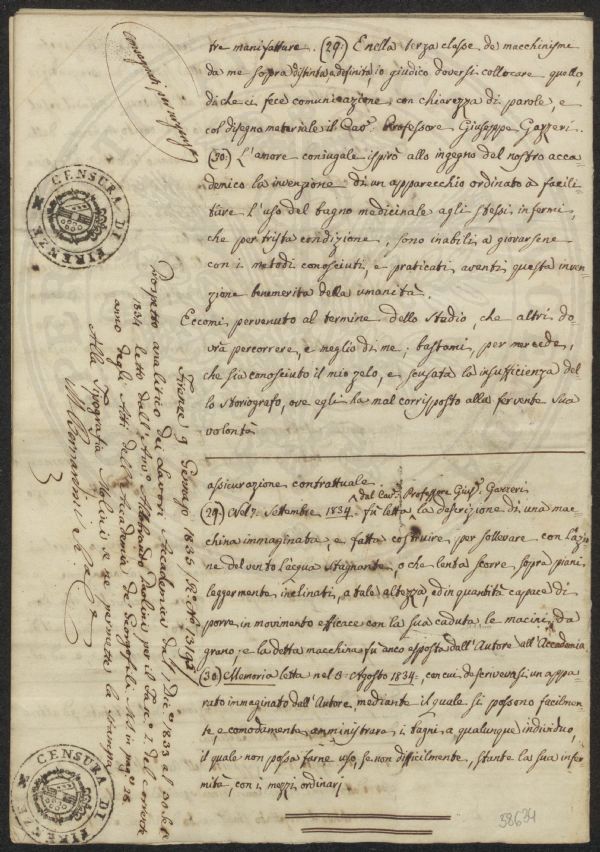 tre manifatture. (29:) E nella terza classe de macchinismi
da me sopra distinta e definita, io giudico doversi collocare quello,
di che ci fece comunicazione con chiarezza di parole, e
col disegno materiale il Cav.r Professore Giuseppe Gazzeri.
(30:) L'amore coniugale ispirò allo ingegno del nostro acca-
demico la invenzione di un apparecchio ordinato a facili-
tare l'uso del bagno medicinale agli stessi infermi,
che per trista condizione, sono inabili a giovarsene
con i metodi conosciuti, e praticati avanti questa inven-
zione benemerita della umanità.
Eccomi pervenuto al termine dello Stadio, che altri do-
vrà percorrere, e meglio di me; bastami, per mercede,
che sia conosciuto il mio zelo, e scusata la insufficienza del-
lo storiografo, ove egli ha mal corrisposto alla fervente sua
volontà
assicurazione contrattuale
dal Cav.r Professore Gius.e Gazzeri
(29) Nel 7. Settembre 1834. fù letta la descrizione di una mac-
china immaginata, e fatta costruire, per sollevare con l'azio-
ne del vento l'acqua stagnante, o che lenta scorre sopra piani
leggermente inclinati, a tale altezza, ed in quantità capace di
porre in movimento efficace con la sua caduta le macine da
grano; e la detta macchina fù anco esposta dall'Autore all'Accademia
(30) Memoria letta nel 3. Agosto 1834., con cui descrivevasi un appa-
rato immaginato dall'Autore mediante il quale si possono facilmen-
te, e comodamente amministrare i bagni a qualunque individuo,
il quale non possa farne uso, se non difficilmente, stante la sua infer-
mità, con i mezzi ordinarj
CENSURA DI FIRENZE
Firenze 9 Gennajo 1835
Prospetto analitico dei Lavori Accademici dal 1 Dic.e 1833 al 30 9.e
1834 letto dall'Avv.o Aldobrando Paolini per il Fasc.o 1. del corrente
anno degli Atti dell'Accademia de' Georgofili
Alla Tipografia Molini se ne permette la stampa
3
CENSURA DI FIRENZE
38634